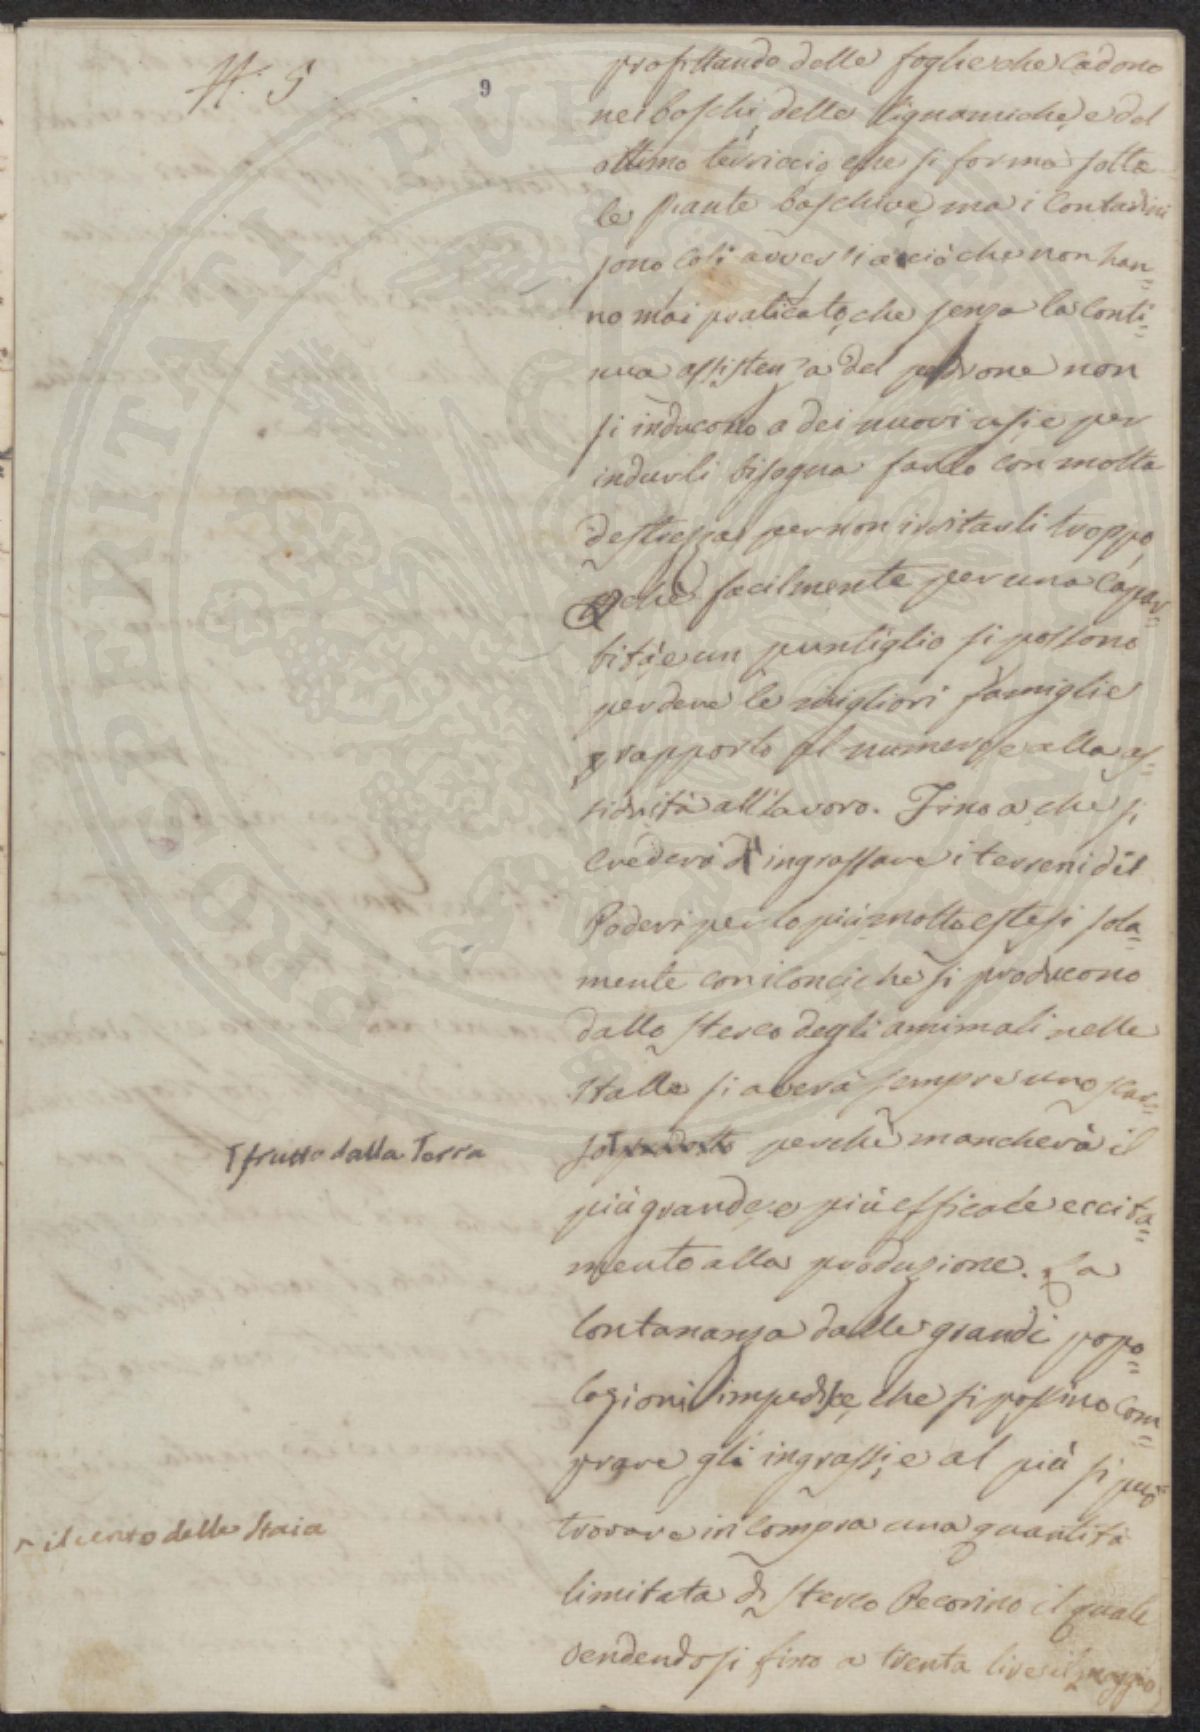 N. 5
9
profittando delle foglie che cadono
nei boschi, delle lignamiche, e del
ottimo terriccio, che si forma sotto
le piante boschive, ma i Contadini
sono così avversi a ciò che non han=
no mai praticato, che senza la conti=
nua assistenza del padrone non
si inducono a dei nuovi usi, e per
indurli bisogna farlo con molta
destrezza per non irritarli troppo,
chè facilmente per una capar=
bità, e un puntiglio si possono
perdere le migliori famiglie
rapporto al numero, e alla as=
siduità all'lavoro. Fino a che si
crederà d'ingrassare i terreni dei
Poderi per lo più molto estesi sola=
mente con i conci che si producono
dallo sterco degli animali nelle
stalle si averà sempre uno scar=
so perchè mancherà il
T frutto dalla Terra
più grande, e più efficace eccita=
mento alla produzione. La
lontananza dalle grandi popo=
lazioni impedisce, che si possino com=
prare gli ingrassi, e al più si può
trovare in compra una quantità
il cento delle Staia
limitata di sterco Pecorino il quale
vendendosi fino a trenta lire il moggio